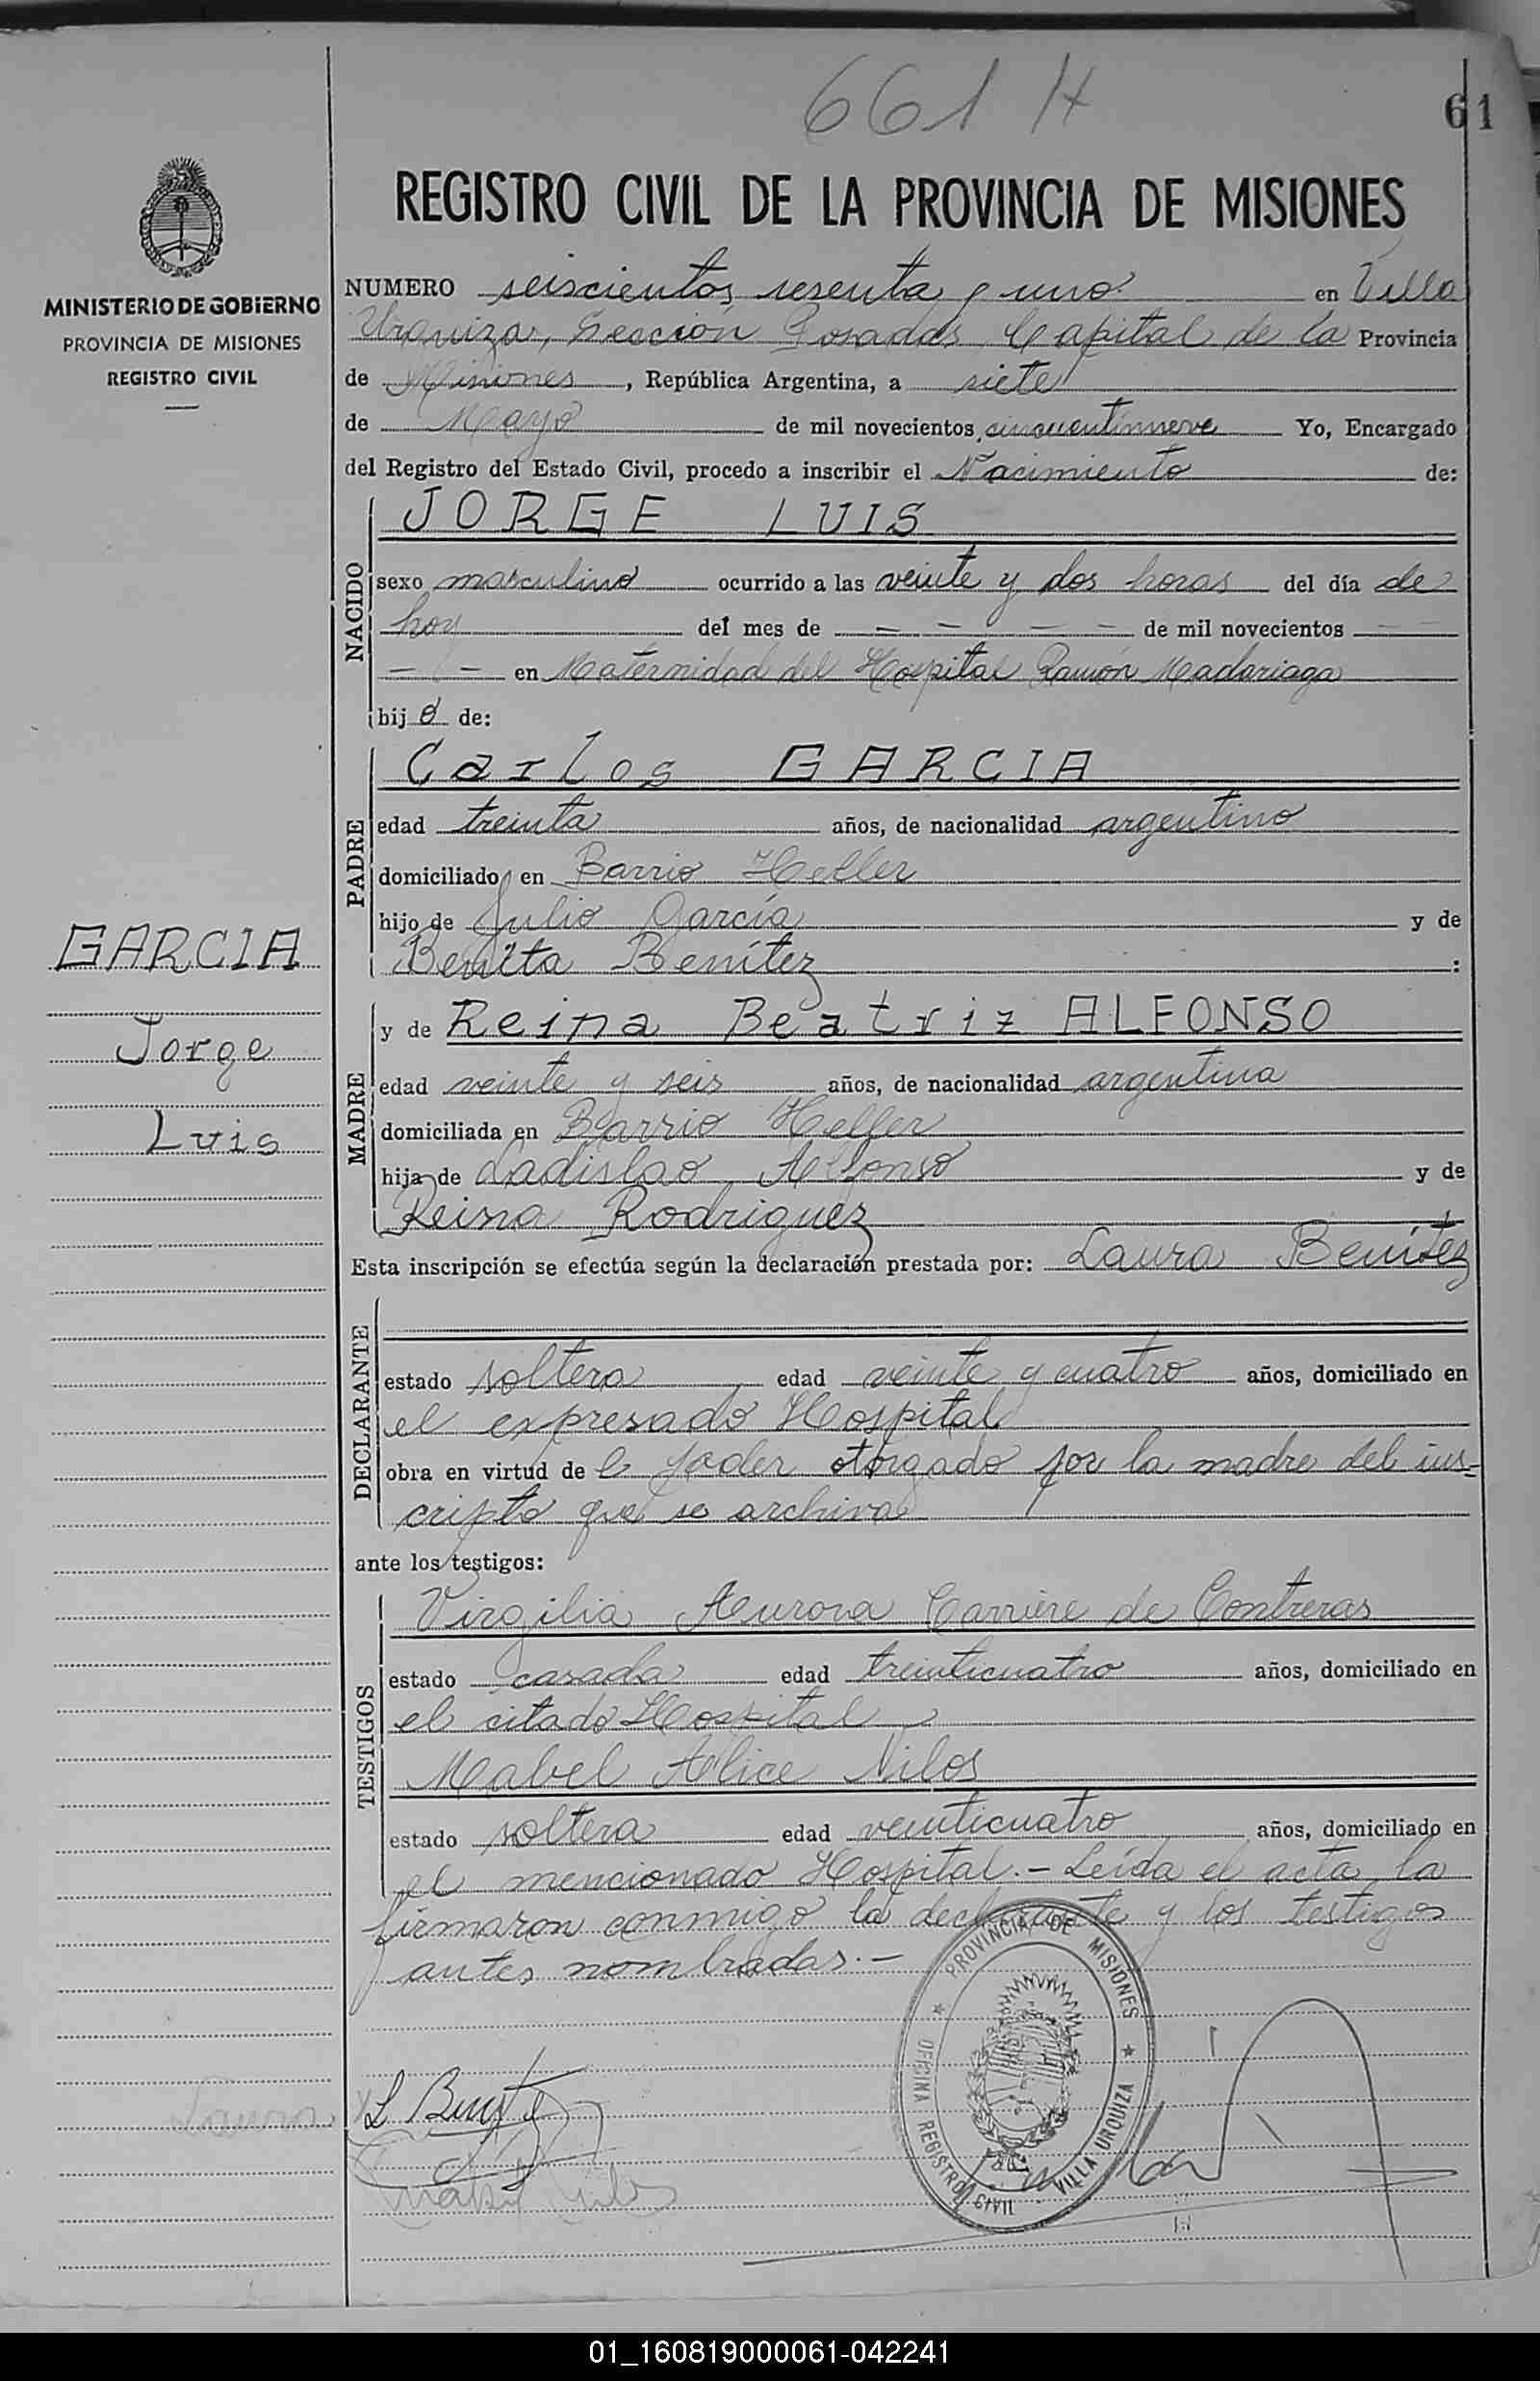 661 H
61
REGISTRO CIVIL DE LA PROVINCIA DE MISIONES
MINISTERIO DE GOBIERNO
PROVINCIA DE MISIONES
REGISTRO CIVIL
NUMERO seiscientos sesenta y uno en Villa
Urquiza, Sección Posadas Capital de la Provincia
de Misiones, República Argentina, a siete
de Mayo de mil novecientos cincuentinueve Yo, Encargado
del Registro del Estado Civil, procedo a inscribir el Nacimiento de:
NACIDO
JORGE LUIS
sexo masculino ocurrido a las veinte y dos horas del día de
hoy del mes de — — — — de mil novecientos — —
— — en Maternidad del Hospital Ramón Madariaga
hijo de:
PADRE
Carlos GARCIA
edad treinta años, de nacionalidad argentino
domiciliado en Barrio Heller
hijo de Julio García y de
Benita Benítez :
MADRE
y de Reina Beatriz ALFONSO
edad veinte y seis años, de nacionalidad argentina
domiciliada en Barrio Heller
hija de Ladislao Alfonso y de
Reina Rodriguez
GARCIA
Jorge
Luis
Esta inscripción se efectúa según la declaración prestada por: Laura Benítez
DECLARANTE
estado soltera edad veinte y cuatro años, domiciliado en
el expresado Hospital
obra en virtud de l poder otorgado por la madre del ins-
cripto que se archiva
ante los testigos:
TESTIGOS
Virgilia Aurora Carriere de Contreras
estado casada edad treinticuatro años, domiciliado en
el citado Hospital
Mabel Alice Nilos
estado soltera edad veinticuatro años, domiciliado en
el mencionado Hospital.- Leída el acta, la
firmaron conmigo la declarante y los testigos
antes nombradas.-
PROVINCIA DE MISIONES
OFICINA REGISTRO CIVIL VILLA URQUIZA
Laura
L Benítez
01_160819000061-042241